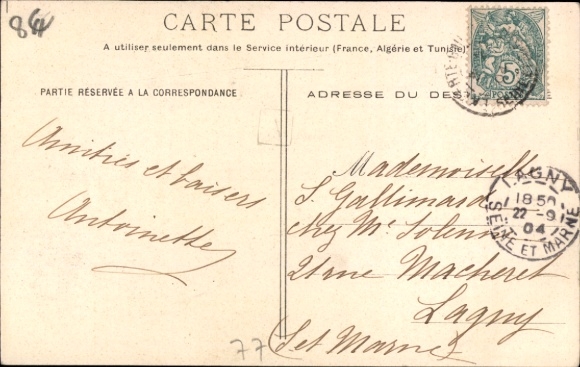 84
CARTE POSTALE
A utiliser seulement dans le Service intérieur (France, Algérie et Tunisie)
PARTIE RÉSERVÉE A LA CORRESPONDANCE
ADRESSE DU DES
5c
POSTES
Amitiés et baisers
Antoinette
Mademoiselle
S. Gallimard
chez Mr Solenn
21 rue Macheret
Lagny
(S et Marne)
LAGNY
1850
22 - 9
04
SEINE ET MARNE
77